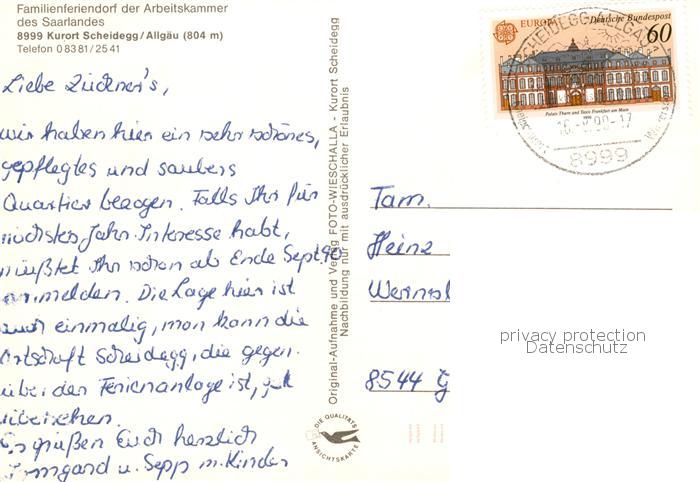 Familienferiendorf der Arbeitskammer
des Saarlandes
8999 Kurort Scheidegg/Allgäu (804 m)
Telefon 0 83 81 / 25 41
Liebe Zückner's,
wir haben hier ein sehr schönes,
gepflegtes und saubers
Quartier bezogen. Falls Ihr für
nächstes Jahr Interesse habt,
müßtet Ihr schon ab Ende Sept. 90
anmelden. Die Lage hier ist
auch einmalig, man kann die
Ortschaft Scheidegg, die gegen-
über der Ferienanlage ist, gut
Es grüßen Euch herzlich
Irmgard u. Sepp m. Kinder
Original-Aufnahme und Verlag FOTO-WIESCHALLA - Kurort Scheidegg
Nachbildung nur mit ausdrücklicher Erlaubnis
DIE QUALITÄTS
ANSICHTSKARTE
EUROPA
Deutsche Bundespost
60
Palais Thurn und Taxis Frankfurt am Main
SCHEIDEGG, ALLGÄU
8999
Fam.
Heinz
8544 G
privacy protection
Datenschutz